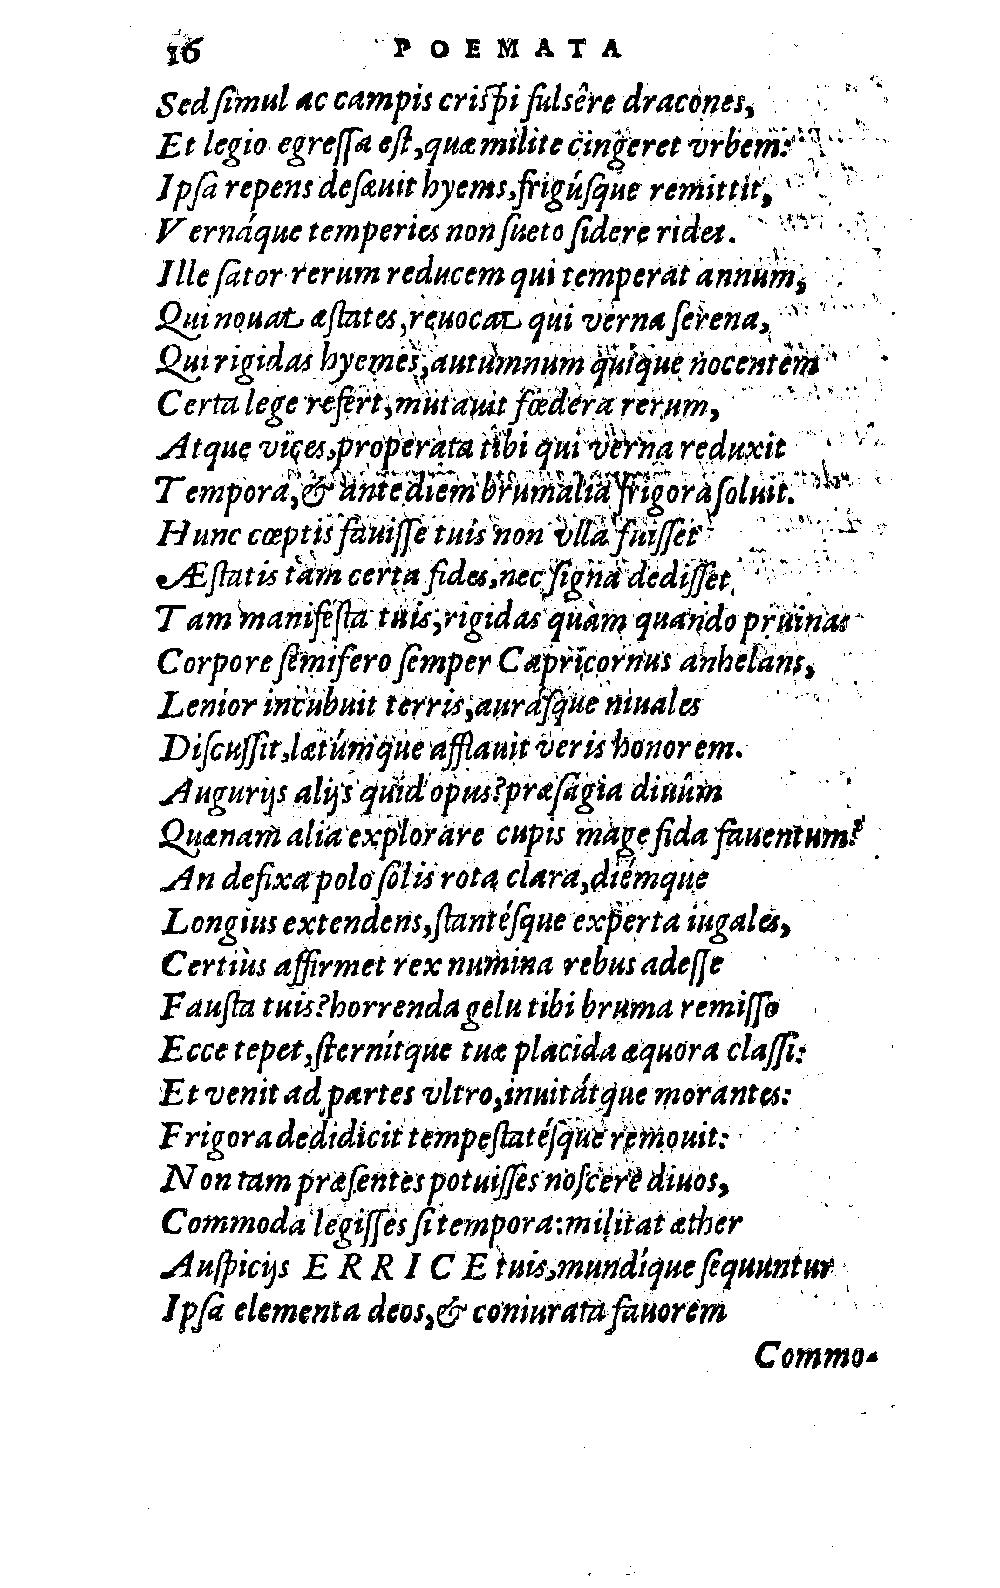 16 POEMATA
Sed ſimul ac campis criſpi fulsêre dracones,
Et legio egreſſa eſt, quæ milite cingeret vrbem:
Ipſa repens deſæuit hyems, frigúſque remittit,
Vernáque temperies non ſueto ſidere ridet.
Ille ſator rerum reducem qui temperat annum,
Qui nouat æſtates, reuocat qui verna ſerena,
Qui rigidas hyemes, autumnum quique nocentem
Certa lege refert, mutauit fœdera rerum,
Atque vices, properata tibi qui verna reduxit
Tempora, & ante diem brumalia frigora ſoluit.
Hunc cœptis fauiſſe tuis non vlla fuiſſet
Æſtatis tàm certa fides, nec ſigna dediſſet
Tam manifeſta tuis, rigidas quàm quando pruinas
Corpore ſemifero ſemper Capricornus anhelans,
Lenior incubuit terris, auráſque niuales
Diſcuſſit, lætúmque afflauit veris honorem.
Augurijs alijs quid opus? præſagia diuûm
Quænam alia explorare cupis mage fida fauentum?
An defixa polo ſolis rota clara, diémque
Longius extendens, ſtantéſque experta iugales,
Certiùs affirmet rex numina rebus adeſſe
Fauſta tuis? horrenda gelu tibi bruma remiſſo
Ecce tepet, ſternítque tuæ placida æquora claſſi:
Et venit ad partes vltro, inuitátque morantes:
Frigora dedidicit tempeſtatéſque remouit:
Non tam præſentes potuiſſes noſcere diuos,
Commoda legiſſes ſi tempora: militat æther
Auſpicijs ERRICE tuis, mundíque ſequuntur
Ipſa elementa deos, & coniurata fauorem
Commo-